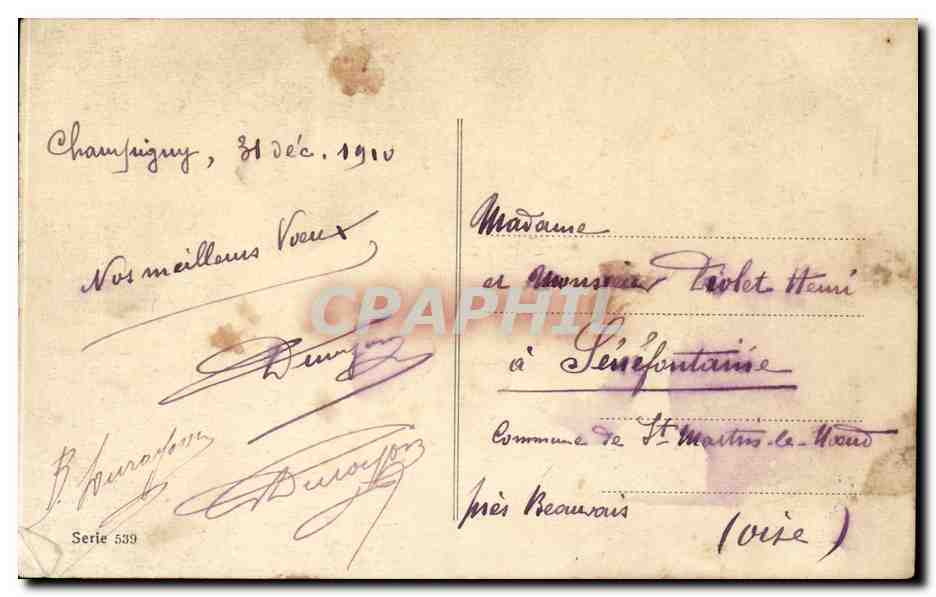 Champigny, 31 Déc. 1910
Nos meilleurs Vœux
Durayon
B. Durayon
Durayon
Serie 539
Madame
et Monsieur Violet Henri
à Sénéfontaine
Commune de St Martin-le-Nœud
près Beauvais
(Oise)
CPAPHIL